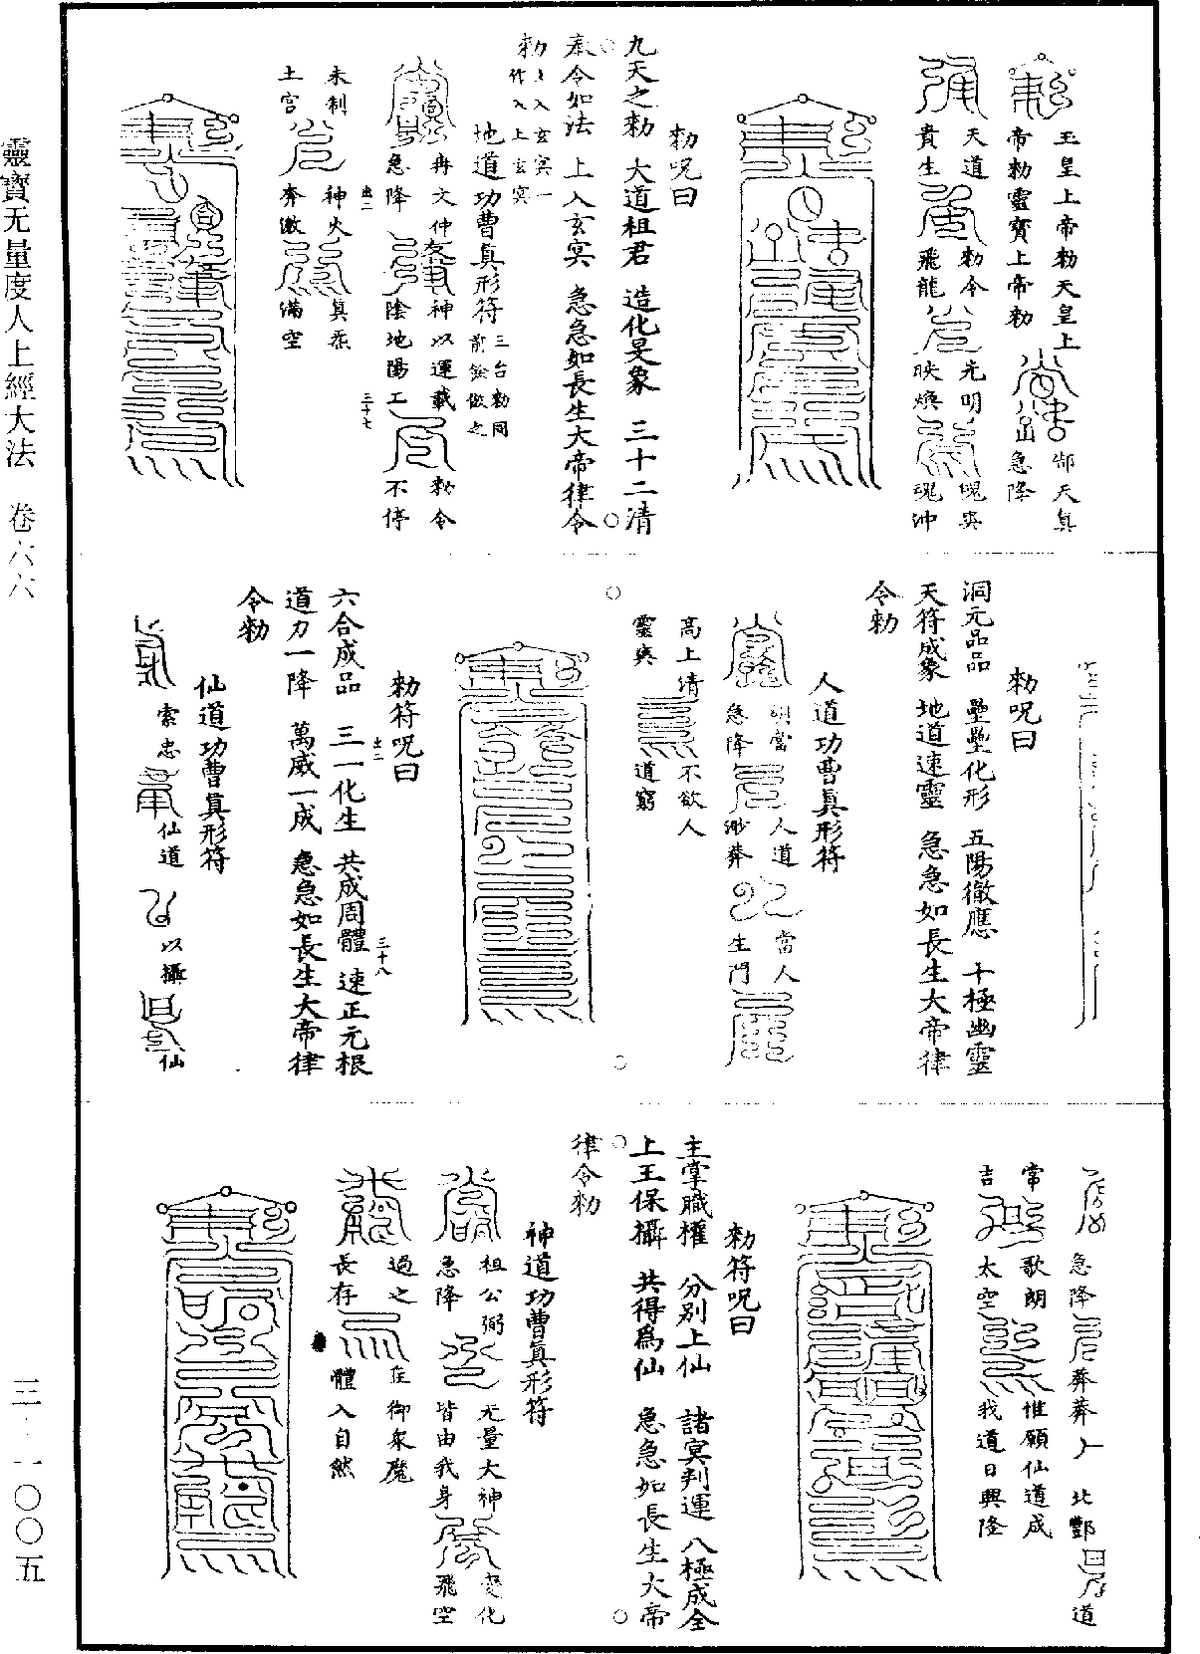 靈寶无量度人上經大法　卷六六
三·一〇〇五
玉皇上帝勅天皇上
帝勅靈寶上帝勅
鄁天真
急降
天道
貴生
勅令
飛龍
光明
映煥
魄爽
魂沖
勅呪曰
九天之勅　大道祖君　造化是象　三十二清
眞令如法　上入玄冥　急急如長生大帝律令
勅上入玄冥一作入上玄冥
地道功曹眞形符三台勅同前餘倣之
冉文仲
急降
神以運載
陰地陽工
勅令
不停
未制
土宮
神火
奔激
真炁
滿空
三十七
勅呪曰
洞元品品　壘壘化形　五陽徹應　十極幽靈
天符成象　地道速靈　急急如長生大帝律
令勅
人道功曹眞形符
明當
急降
人道
渺莽
當人
生門
高上清
不欲人
靈爽
道窮
三十八
勅符呪曰
六合成品　三一化生　共成周體　速正元根
道力一降　萬威一成　急急如長生大帝律
令勅
仙道功曹眞形符
索忠
仙道
以攝
仙
急降
莽莽
北酆
道
常
歌朗
惟願仙道成
吉
太空
我道日興隆
勅符呪曰
主掌職權　分別上仙　諸冥判運　八極成全
上王保攝　共得爲仙　急急如長生大帝
律令勅
神道功曹眞形符
祖公弼
急降
无量大神
皆由我身
變化
飛空
過之
長存
在御衆魔
體入自然